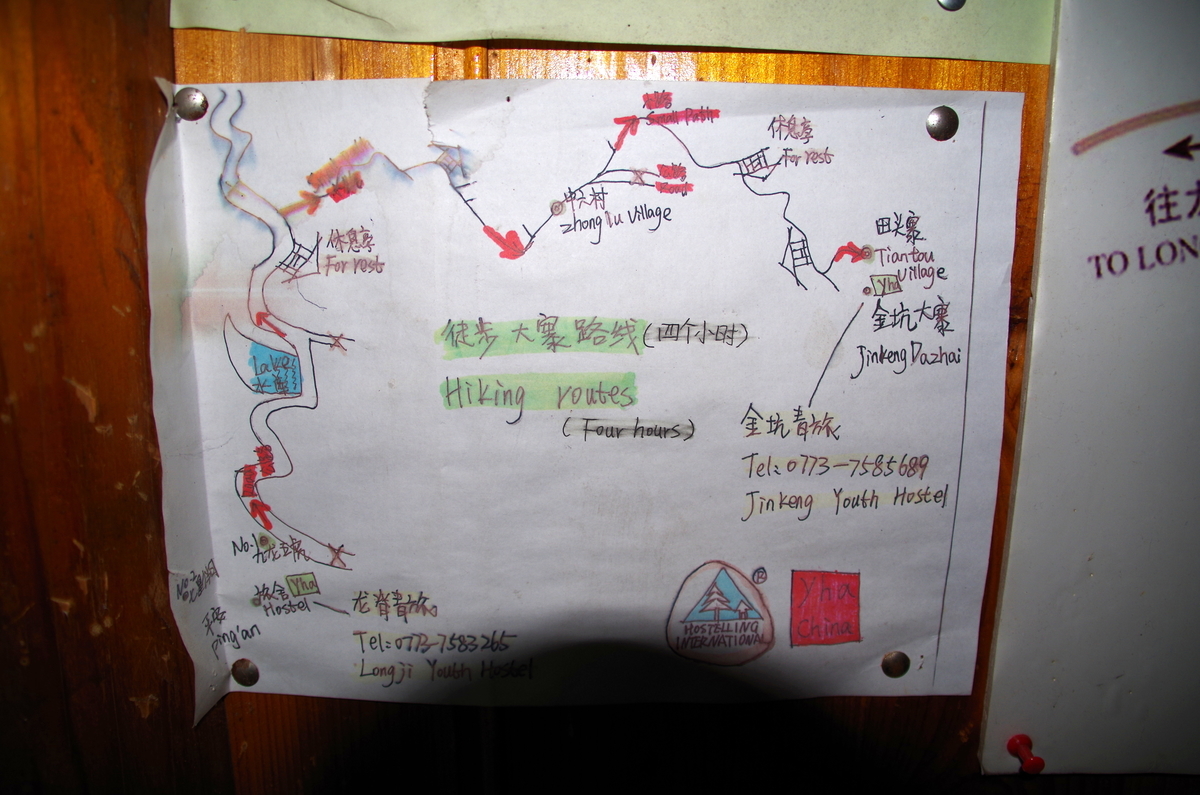 Small Path
Road
休息亭
For rest
中六村
zhong lu village
田头寨
Tiantou
Village
yha
金坑大寨
Jinkeng Dazhai
休息亭
For rest
徒步大寨路线(四个小时)
Hiking routes
(Four hours)
Lake
金坑青旅
Tel:0773-7585689
Jinkeng Youth Hostel
No.1
旅舍 yha
Hostel
平安
ping'an
龙脊青旅
Tel:0773-7583265
Longji Youth Hostel
HOSTELLING
INTERNATIONAL
®
yha
China
往
TO LON